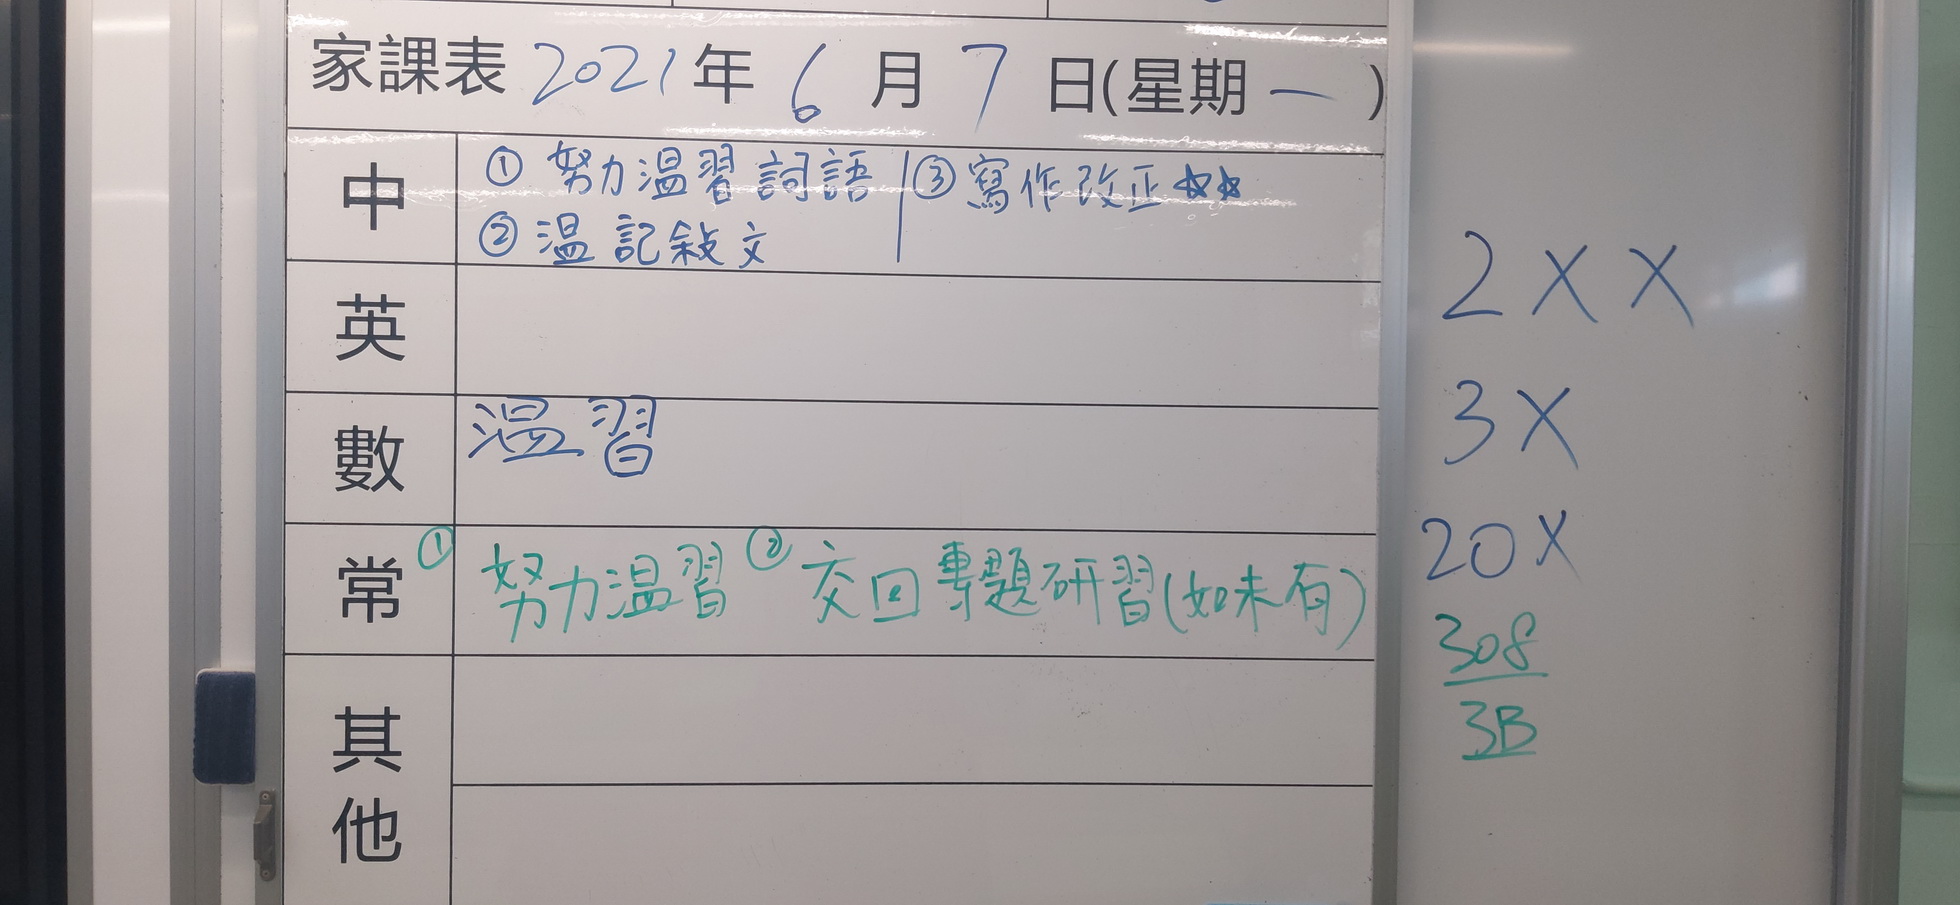 家課表 2021年 6 月 7 日(星期一)
中
① 努力温習詞語
② 温記敍文
③ 寫作改正☆☆
英
數
温習
常
① 努力温習 ② 交回專題研習(如未有)
其他
2XX
3X
20X
308
3B